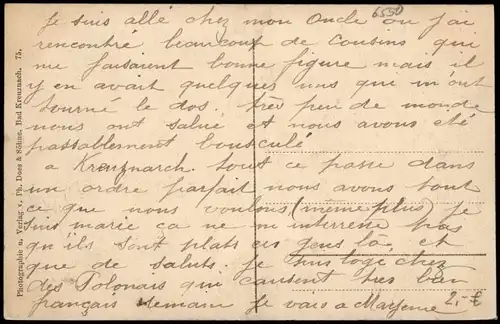 6550
Je suis allé chez mon Oncle ou j'ai
rencontré beaucoup de cousins qui
me faisaient bonne figure mais il
y en avait quelques uns qui m'ont
tourné le dos. très peu de monde
nous ont salué et nous avons eté
passablement bousculé
a Kreuznarch. tout ce passe dans
un ordre parfait nous avons tout
ce que nous voulons (même plus) je
suis marié ca ne m'interresse pas
qu'ils sont plats ces gens là, et
que de saluts. je suis logé chez
des Polonais qui causent tres bien
français demain Je vais a Mayence
2,-€
Photographie u. Verlag v. Ph. Doos & Söhne, Bad Kreuznach. 75.